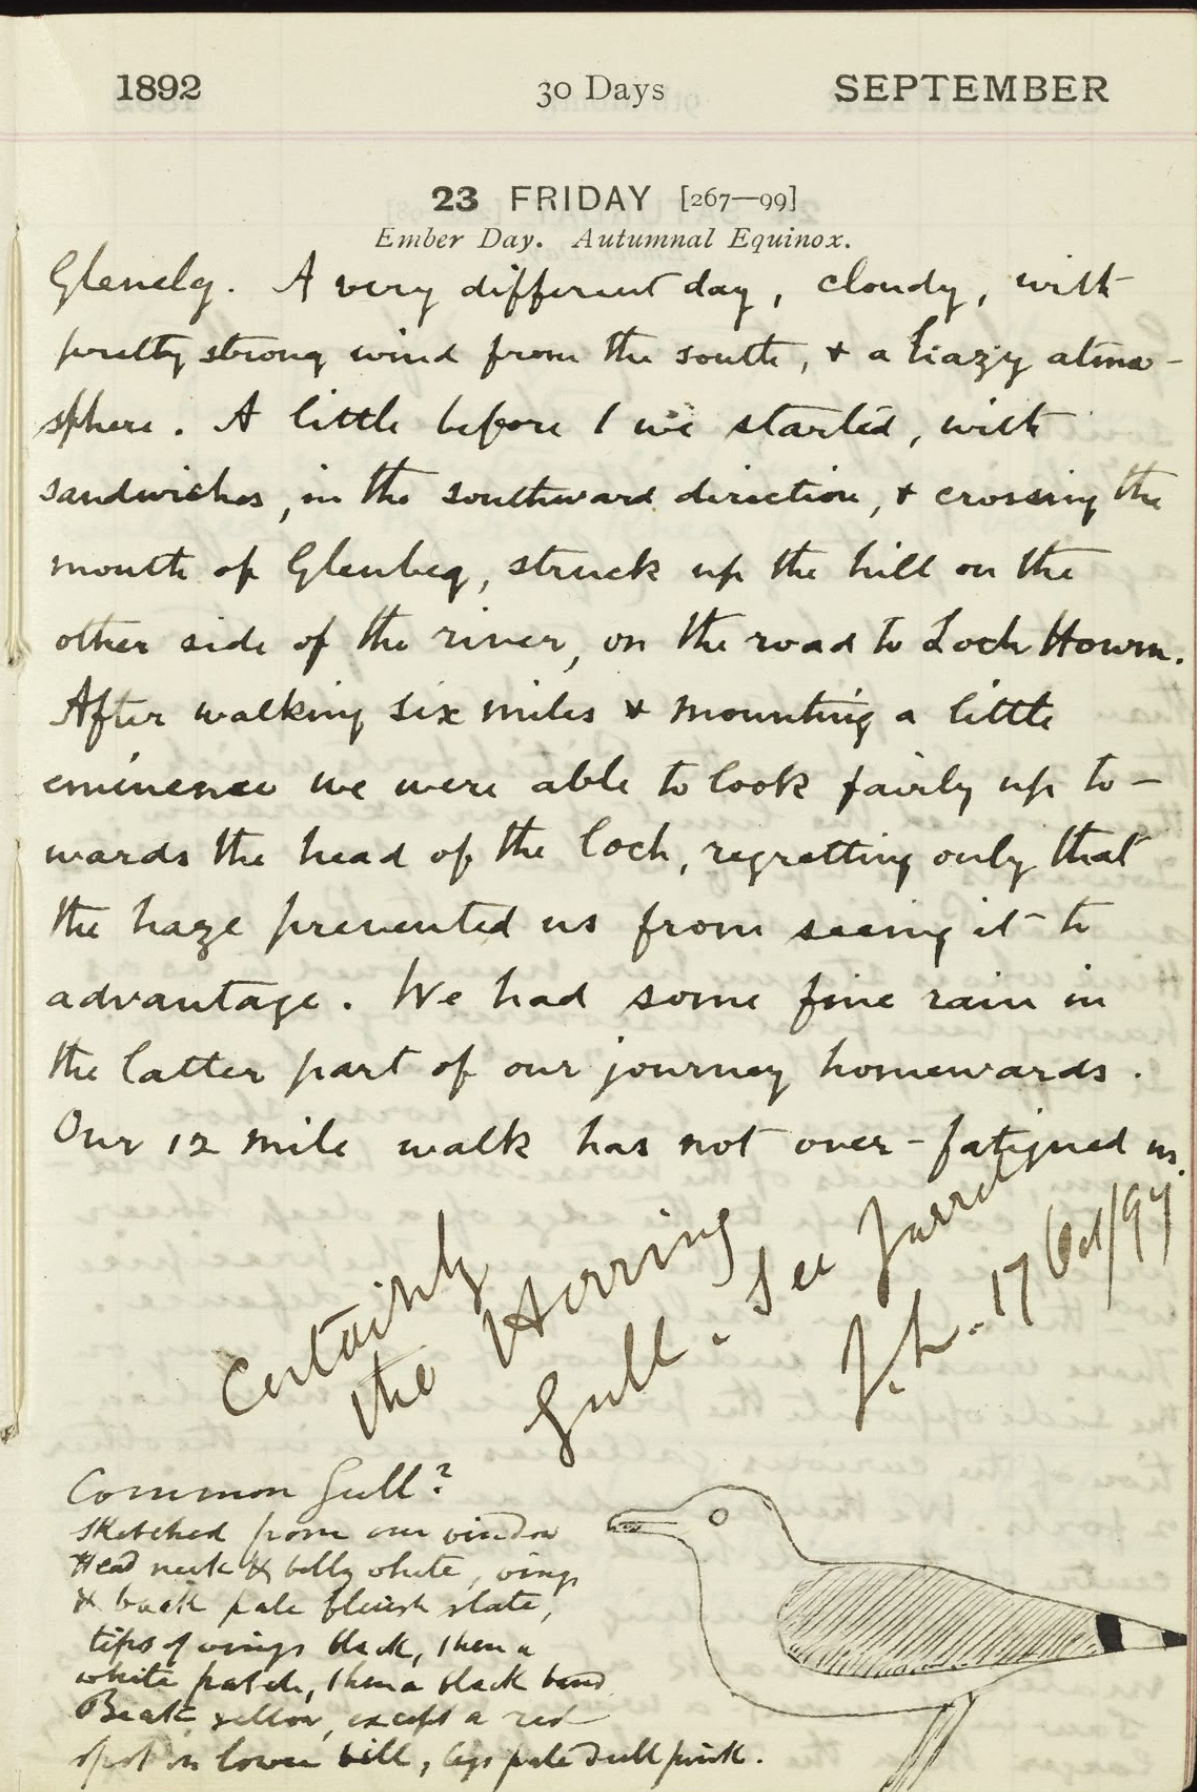 1892 30 Days SEPTEMBER
23 FRIDAY [267—99]
Ember Day. Autumnal Equinox.
Glenelg. A very different day, cloudy, with
pretty strong wind from the south, & a hazy atmo-
sphere. A little before 1 we started, with
sandwiches, in the southward direction, & crossing the
mouth of Glenbeg, struck up the hill on the
other side of the river, on the road to Loch Hourn.
After walking six miles & mounting a little
eminence we were able to look fairly up to-
wards the head of the loch, regretting only that
the haze prevented us from seeing it to
advantage. We had some fine rain in
the latter part of our journey homewards.
Our 12 mile walk has not over-fatigued us.
Certainly
the Herring
Gull - See
J.L. 17 Oct/97
Common Gull?
sketched from our window
Head neck & belly white, wings
& back pale bluish slate,
tips of wings black, then a
white patch, then a black band
Beak yellow, except a red
spot on lower bill, legs pale dull pink.